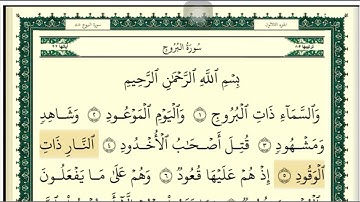 سُورَةُ البُرُوجِ
بِسْمِ اللَّهِ الرَّحْمَٰنِ الرَّحِيمِ
وَالسَّمَاءِ ذَاتِ الْبُرُوجِ ١ وَالْيَوْمِ الْمَوْعُودِ ٢ وَشَاهِدٍ
وَمَشْهُودٍ ٣ قُتِلَ أَصْحَابُ الْأُخْدُودِ ٤ النَّارِ ذَاتِ
الْوَقُودِ ٥ إِذْ هُمْ عَلَيْهَا قُعُودٌ ٦ وَهُمْ عَلَىٰ مَا يَفْعَلُونَ